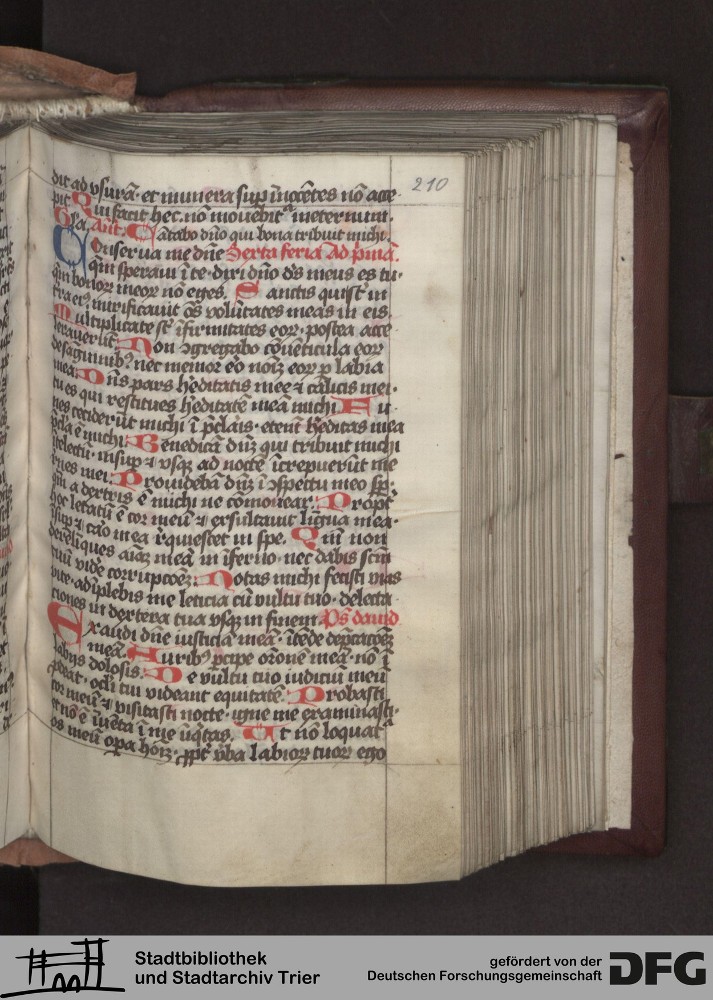 210
dit ad vsurā· et munera sup īnocētes nō acce
pit Qui facit hec· nō mouebit᷑ ineternum·
Gl̄a. Ant. Cātabo dn̄o qui bona tribuit michi.
Conserua me dn̄e Sexta feria Ad p̄mā.
qm̄ speraui ī te· dixi dn̄o ds̄ meus es tu·
qm̄ bonoꝝ meoꝝ nō eges. Sanctis qui st̄ in
tra eiꝰ mirificauit oēs volūtates meas in eis.
Multiplicate st̄ īfirmitates eoꝝ· postea acce
lerauerūt Non ꝯgregabo cōuēticula eoꝝ
de sāguinibꝰ nec memor ero noīm eoꝝ p labia
mea Dn̄s pars h̄editatis mee ⁊ calicis mei·
tu es qui restitues h̄editatē meā michi Fu
nes ceciderūt michi ī p̄clais· eteni h̄editas mea
p̄cla ē michi Benedicā dn̄m qui tribuit michi
ītelectū· insup ⁊ vsqꝫ ad noctē īcrepuerūt me
renes mei. Prouidebā dn̄m ī ꝯspectu meo sp̄·
qm̄ a dextris ē michi ne cōmouear. Propt᷑
hoc letatū ē cor meū ⁊ exsultauit ligua mea·
īsup ⁊ caro mea reqiescet in spe. Qm̄ non
derelīques aīaꝫ meā in īferno· nec dabis scm̄
tuū vide corrupcoēꝫ Notas michi fecisti vias
vite· adīplebis me leticia cū vultu tuo· delecta
ciones in dextera tua vsqꝫ in finem. Ps dauid
Exaudi dn̄e iusticiā meā· ītēde dep̄catoēꝫ
meā. Auribꝰ p̄cipe oroneꝫ meā· nō ī
labijs dolosis. De vultu tuo iudiciū meū
p̄deat· ocl̄i tui videant equitatē. Probasti
cor meū ⁊ visitasti nocte· igne me examinasti·
et nō ē īuēta ī me īiq̄tas. Vt nō loquat᷑
os meū opa hōīꝫ· ꝓpt᷑ v̄ba labioꝝ tuoꝝ ego
Stadtbibliothek
und Stadtarchiv Trier
gefördert von der
Deutschen Forschungsgemeinschaft
DFG